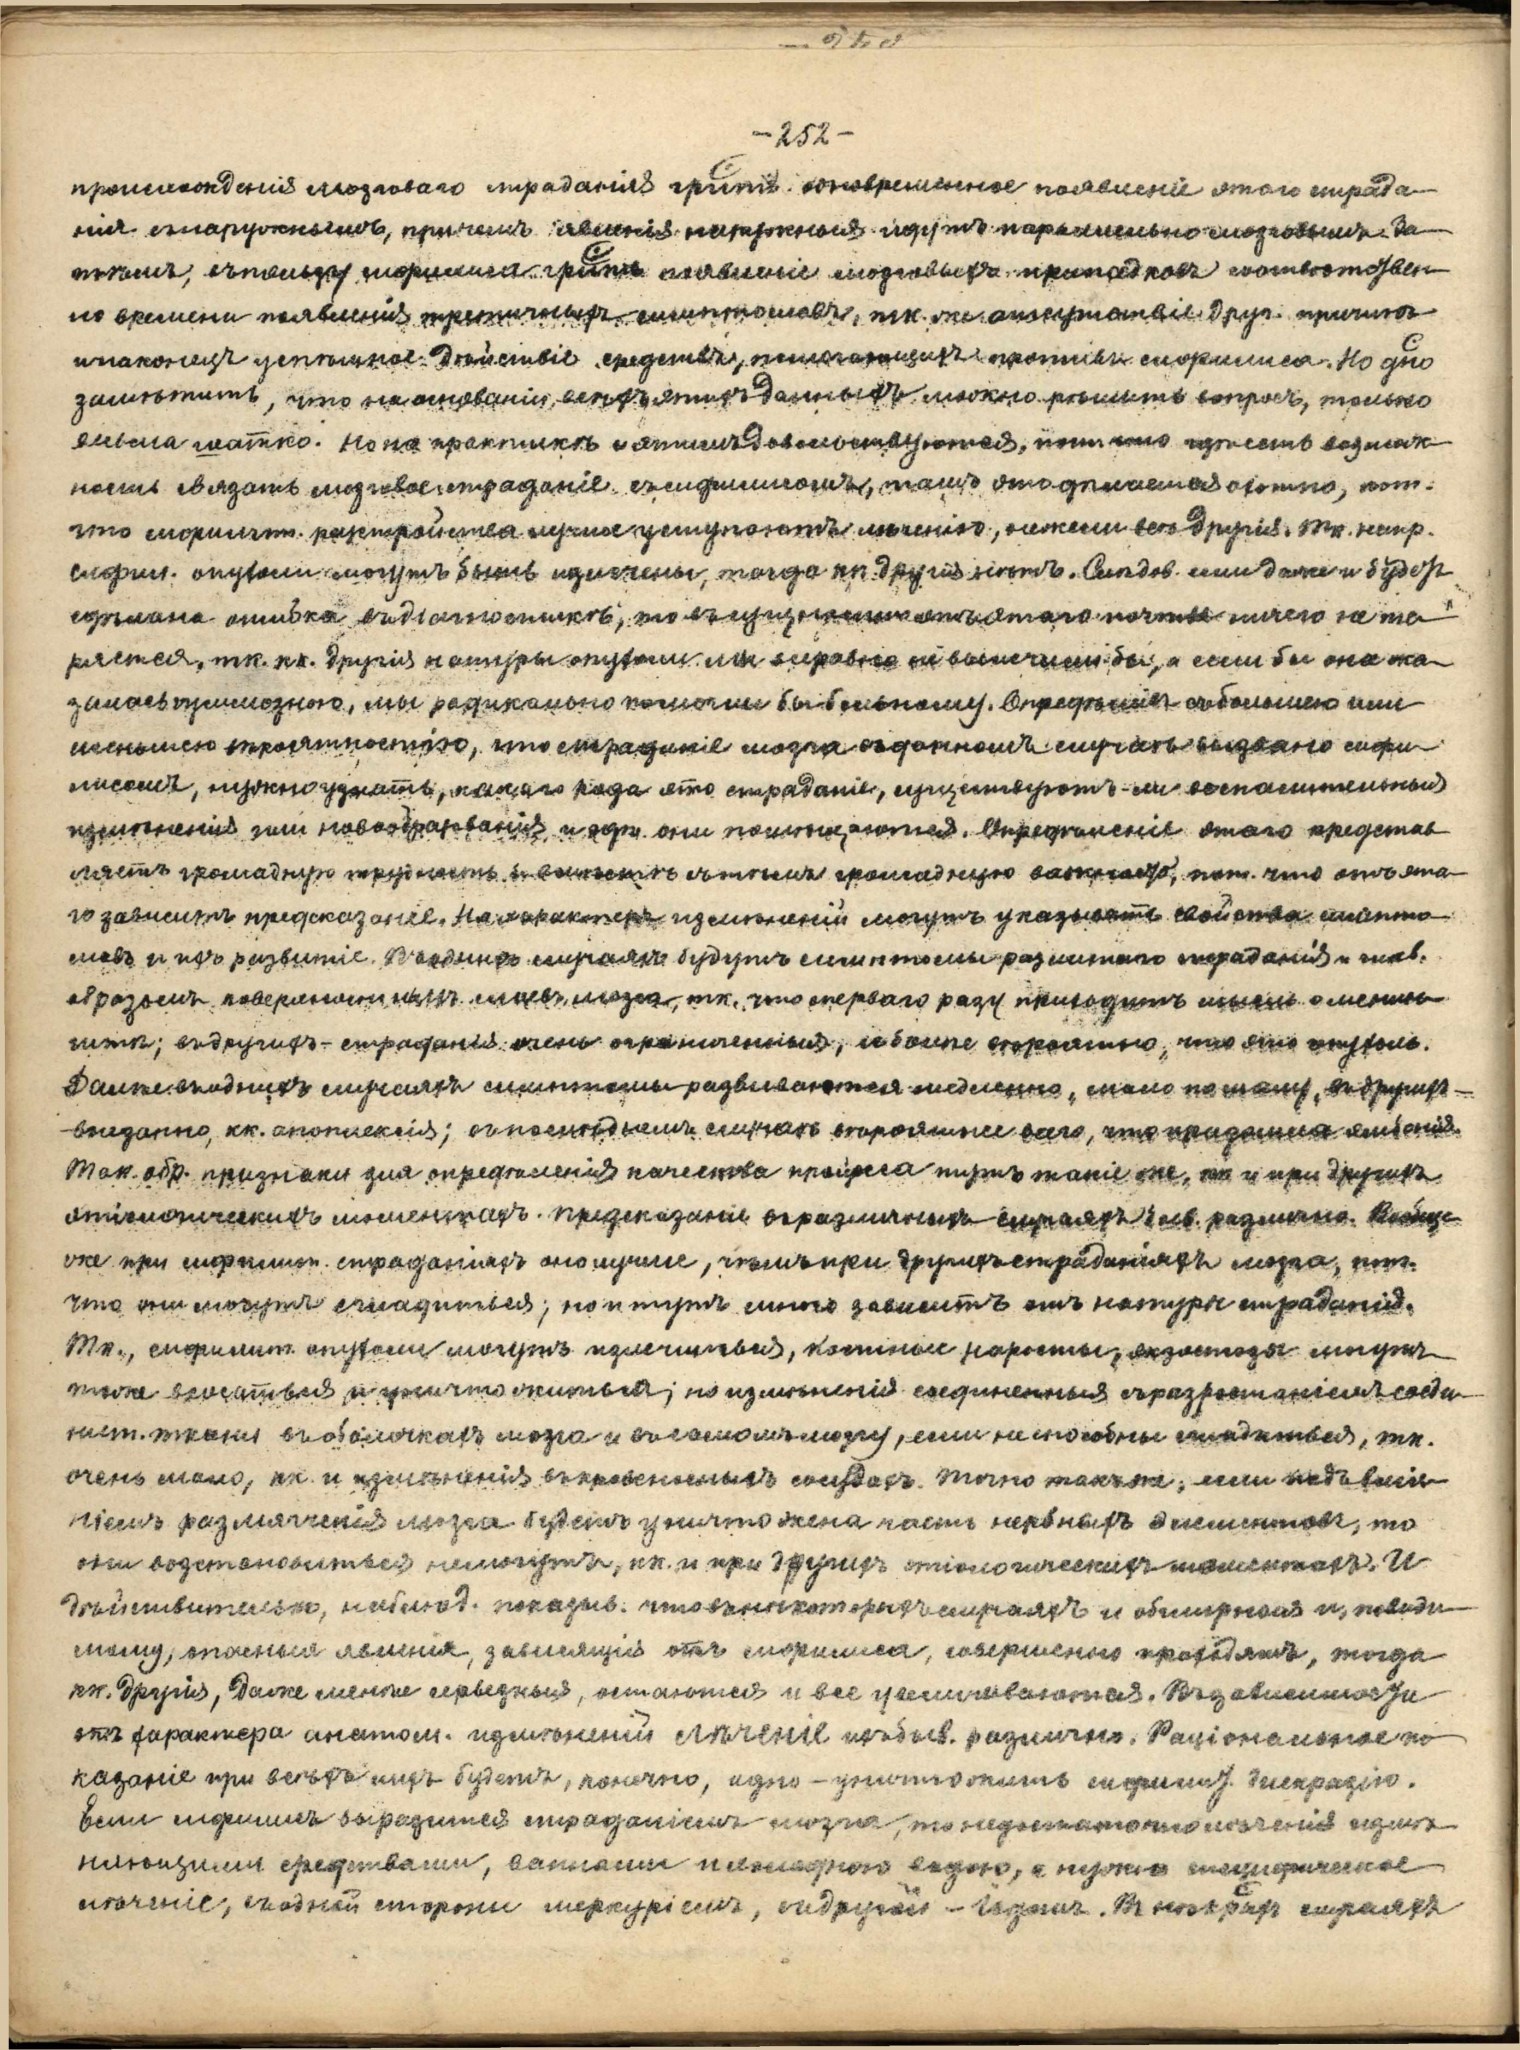 -252-
происхожденія мозговаго страданія гритъ одновременное появленіе этого страда-
нія съ наружнымъ, причемъ явленія наружныя идутъ параллельно мозговымъ. За-
тѣмъ, въ пользу сифилиса гритъ появленіе мозговыхъ припадковъ соотвѣтствен-
но времени появленія третичныхъ симптомовъ, тк. же отсутствіе друг. причинъ
и наконецъ успѣшное дѣйствіе средствъ, помогающихъ противъ сифилиса. Но дно
замѣтить, что на основаніи всѣхъ этихъ данныхъ можно рѣшить вопросъ, только
весьма шатко. Но на практикѣ и этимъ довольствуются, пот. что гдѣ есть возмож-
ность связать мозговое страданіе съ сифилисомъ, тамъ это дѣлается охотно, пот.
что сифилит. разстройства лучше уступаютъ лѣченію, нежели всѣ другія. Тк. напр.
сифил. опухоли могутъ быть излечены, тогда кк. другія нѣтъ. Слѣдов. если даже и будетъ
сдѣлана ошибка въ діагностикѣ, то въ сущности отъ этого почти ничего не те-
ряется, тк. кк. другія натуры опухоли мы все равно не вылечили бы, а если бы она ока-
залась гуммозною, мы радикально помогли бы больному. Опредѣливъ съ большею или
меньшею вѣроятностію, что страданіе мозга въ данномъ случаѣ вызвано сифи-
лисомъ, нужно узнать, какого рода это страданіе, существуютъ-ли воспалительныя
измѣненія или новообразованія и гдѣ они помѣщаются. Опредѣленіе этого представ-
ляетъ громадную трудность и вмѣстѣ съ тѣмъ громадную важность, пот. что отъ это-
го зависитъ предсказаніе. На характеръ измѣненій могутъ указывать свойства симпто-
мовъ и ихъ развитіе. Въ однихъ случаяхъ будутъ симптомы разлитаго страданія и глав.
образомъ поверхностныхъ слоевъ мозга, тк. что съ перваго разу приходитъ мысль о менин-
гитѣ; въ другихъ - страданія очень ограниченныя, и болѣе вѣроятно, что это опухоль.
Далѣе въ однихъ случаяхъ симптомы развиваются медленно, мало по малу, въ другихъ -
внезапно, кк. апоплексія; въ послѣднемъ случаѣ вѣроятнѣе всего, что произошла эмболія.
Так. обр. признаки для опредѣленія качества процеса тутъ такіе же, кк и при другихъ
этіологическихъ моментахъ. Предсказаніе въ различныхъ случаяхъ быв. различно. Вообще
же при сифилит. страданіяхъ оно лучше, чѣмъ при другихъ страданіяхъ мозга, пот.
что они могутъ сгладиться; но и тутъ много зависитъ отъ натуры страданія.
Тк., сифилит. опухоли могутъ излечиться, костные наросты, экзостозы могутъ
тоже всосаться и уничтожиться; но измѣненія соединенныя съ разростаніемъ соеди-
нит. ткани въ оболочкахъ мозга и въ самомъ мозгу, если и способны сгладиться, тк.
очень мало, кк. и измѣненія въ кровеносныхъ сосудахъ. Точно также, если подъ влія-
ніемъ размягченія мозга будетъ уничтожена часть нервныхъ элементовъ, то
они возстановиться не могутъ, кк. и при другихъ этіологическихъ моментахъ. И
дѣйствительно, наблюд. показыв. что въ нѣкоторыхъ случаяхъ и обширныя и, повиди-
мому, опасныя явленія, зависящія отъ сифилиса, совершенно проходятъ, тогда
кк. другія, даже менѣе серьезныя, остаются и все увеличиваются. Въ зависимости
отъ характера анатом. измѣненій лѣченіе ихъ быв. различно. Раціональное по-
казаніе при всѣхъ ихъ будетъ, конечно, одно - уничтожить сифилит. дискразію.
Если сифилисъ выразился страданіемъ мозга, то недостаточно лѣченія измѣ-
няющими средствами, ваннами и холодною водою, а нужно специфическое
лѣченіе, съ одной стороны меркуріемъ, съ другой - іодомъ. Въ нѣкрыхъ случаяхъ